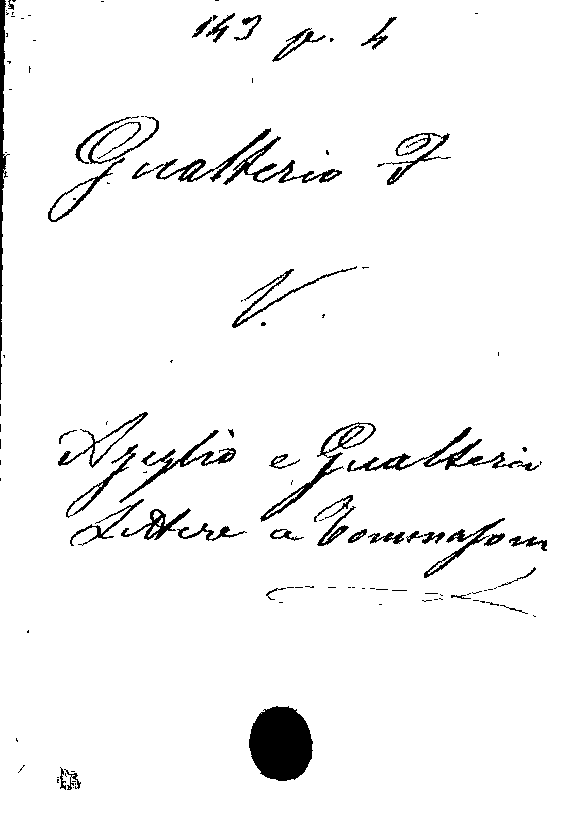 143 p. 4
Gualterio F
V.
Azeglio e Gualterio
Lettere a Tommasoni